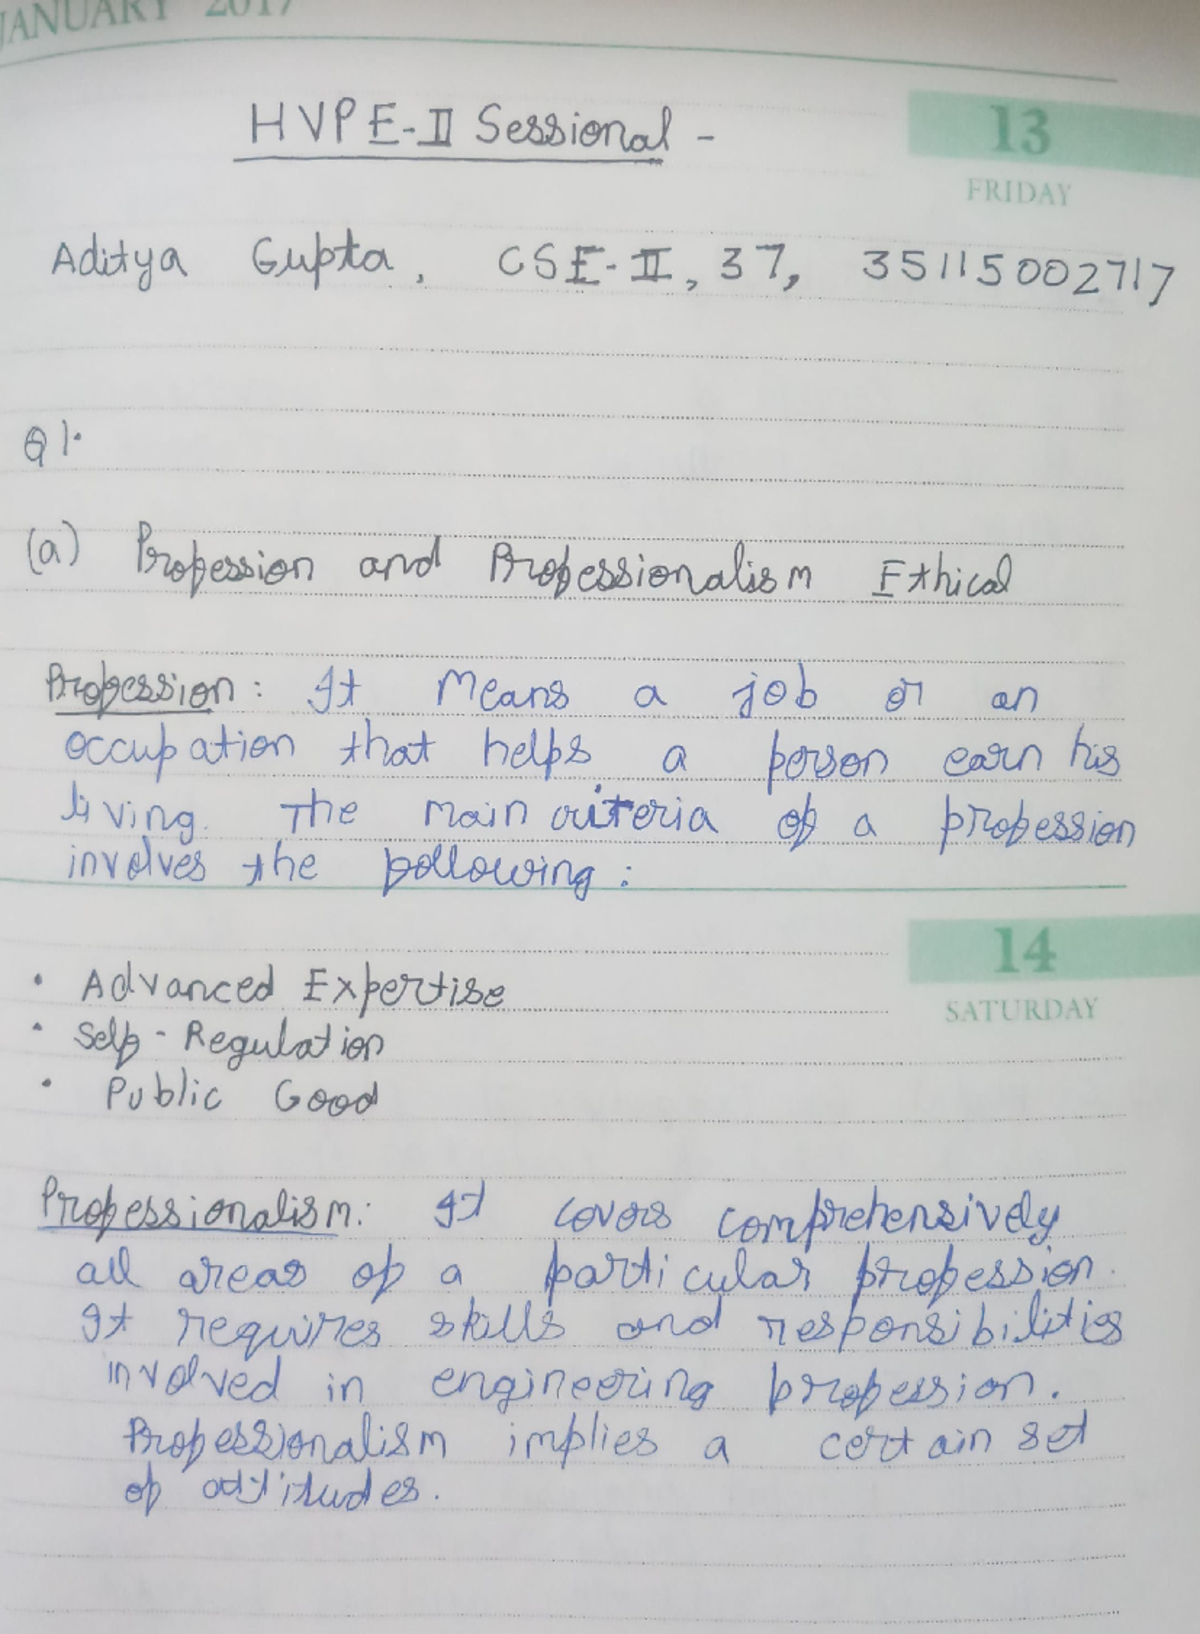 JANUARY 2017
HVPE-II Sessional -
13
FRIDAY
Aditya Gupta, CSE-II, 37, 35115002717
Q1.
(a) Profession and Professionalism Ethical
Profession: It means a job or an
occupation that helps a person earn his
living. The main criteria of a profession
involves the following:
14
SATURDAY
• Advanced Expertise
• Self-Regulation
• Public Good
Professionalism: It covers comprehensively
all areas of a particular profession.
It requires skills and responsibilities
involved in engineering profession.
Professionalism implies a certain set
of attitudes.